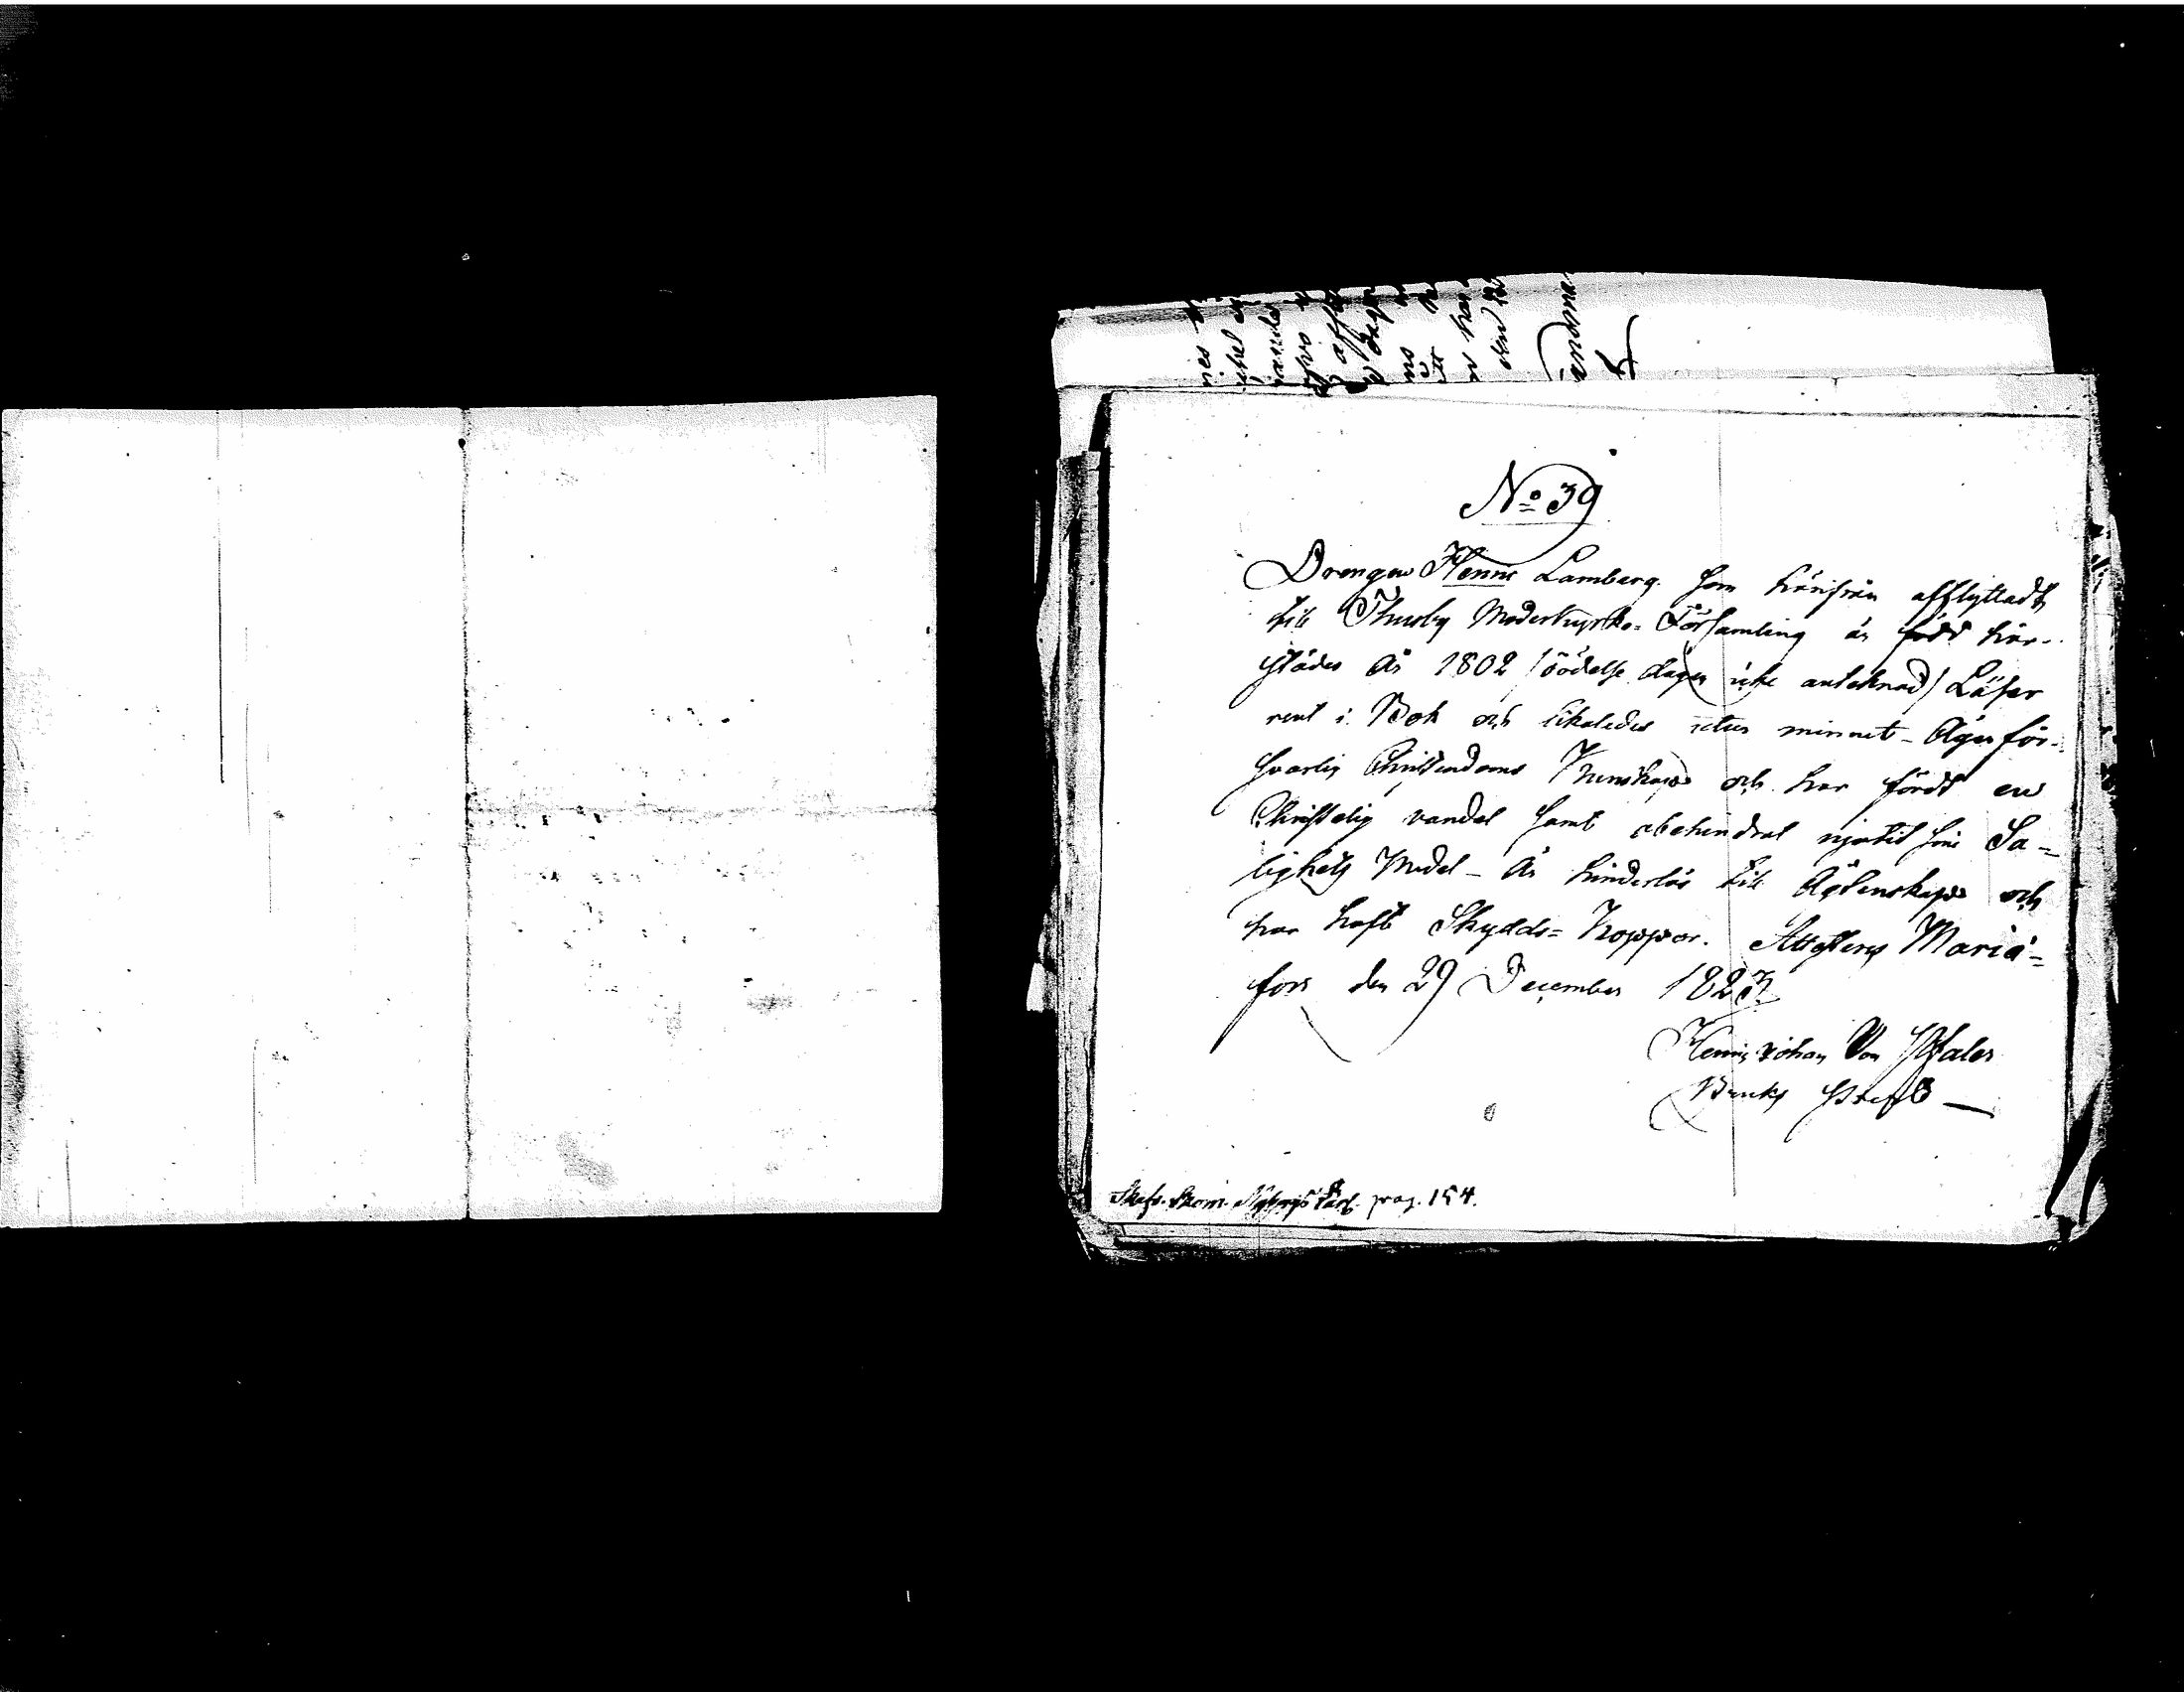 No 39
Drengen Henric Lamberg. som härifrån afflyttadt
till Thusby Moderkyrko= Församling är född här-
städes År 1802 /födelse dagen icke anteknad/ Läser
rent i Bok och likaledes utur minnet - Äger för-
svarlig Christendoms Kunskap och har fördt en
Christelig vandel samt obehindrat njutit sine Sa=
lighets Medel - Är hinderlös till Ägtenskap och
har haft Skydds= Koppor. Attesteras Maria=
fors den 29 December 182
Henric Johan Von Pfaler
Bruks Prest
pag. 154.